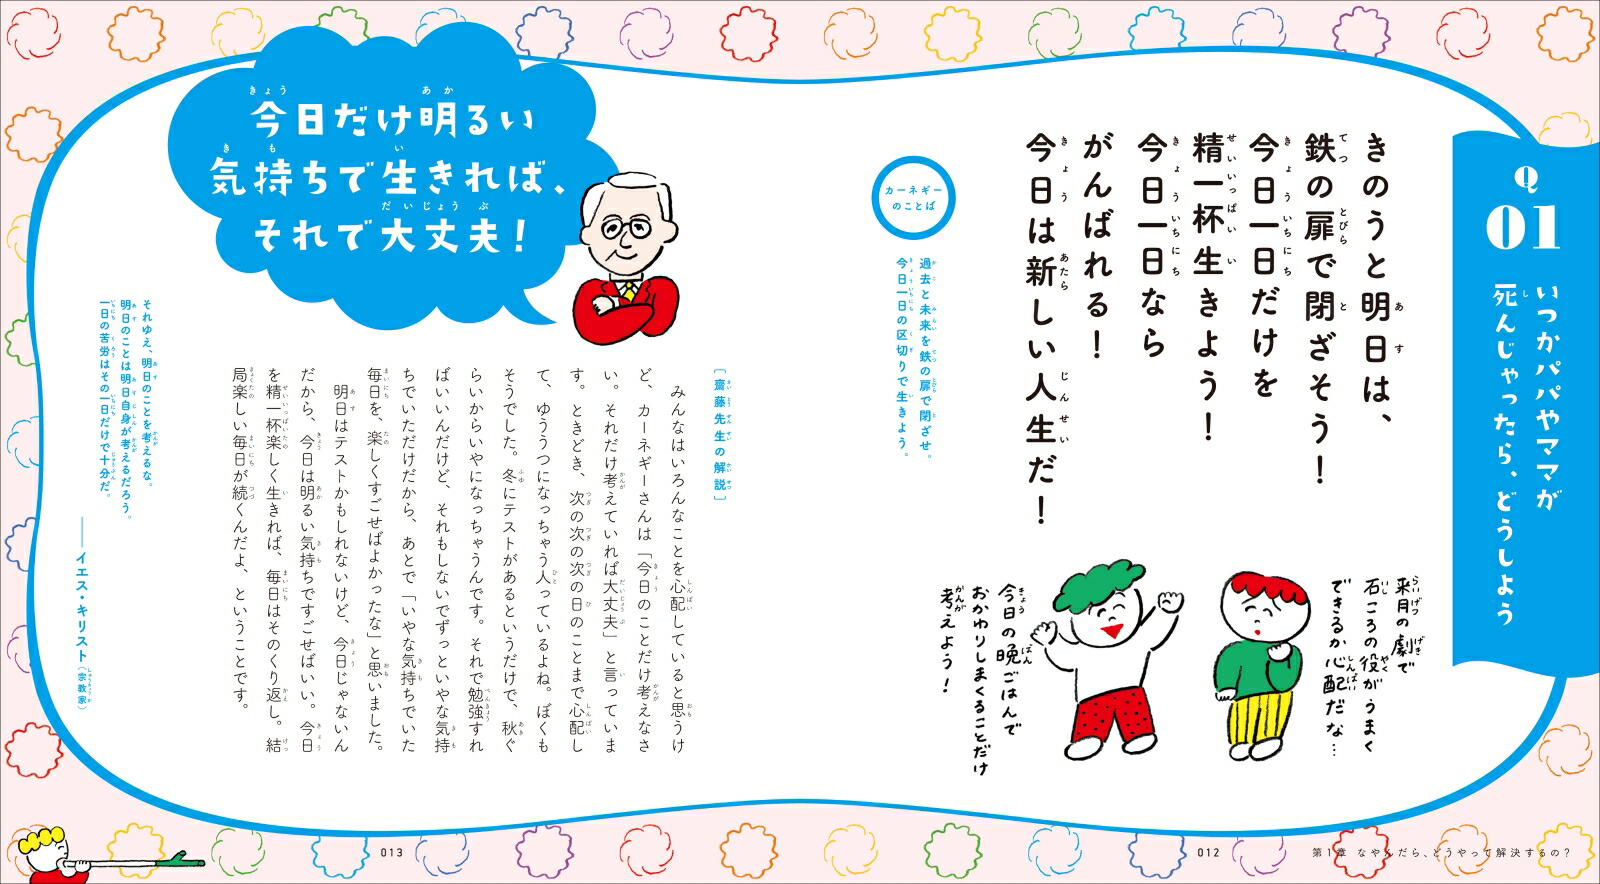 Q
01
いつかパパやママが
死んじゃったら、どうしよう
きのうと明日は、
鉄の扉で閉ざそう！
今日一日だけを
精一杯生きよう！
今日一日なら
がんばれる！
今日は新しい人生だ！
来月の劇で
石ころの役がうまく
できるか心配だな…
今日の晩ごはんで
おかわりしまくることだけ
考えよう！
カーネギー
のことば
過去と未来を鉄の扉で閉ざせ。
今日一日の区切りで生きよう。
012
第1章 なやんだら、どうやって解決するの？
今日だけ明るい
気持ちで生きれば、
それで大丈夫！
［齋藤先生の解説］
みんなはいろんなことを心配していると思うけ
ど、カーネギーさんは「今日のことだけ考えなさ
い。それだけ考えていれば大丈夫」と言っていま
す。ときどき、次の次の次の日のことまで心配し
て、ゆううつになっちゃう人っているよね。ぼくも
そうでした。冬にテストがあるというだけで、秋ぐ
らいからいやになっちゃうんです。それで勉強すれ
ばいいんだけど、それもしないでずっといやな気持
ちでいただけだから、あとで「いやな気持ちでいた
毎日を、楽しくすごせばよかったな」と思いました。
明日はテストかもしれないけど、今日じゃないん
だから、今日は明るい気持ちですごせばいい。今日
を精一杯楽しく生きれば、毎日はそのくり返し。結
局楽しい毎日が続くんだよ、ということです。
それゆえ、明日のことを考えるな。
明日のことは明日自身が考えるだろう。
一日の苦労はその一日だけで十分だ。
――イエス・キリスト（宗教家）
013